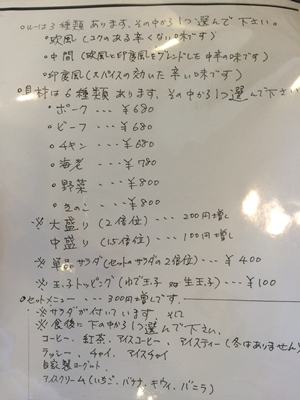 ◦ルーは3種類あります。その中から1つ選んで下さい。
・欧風(コクのある辛くない味です)
・中間(欧風と印度風をブレンドした中辛の味です)
・印度風(スパイスの効いた辛い味です)
◦具材は6種類あります。その中から1つ選んで下さい
・ポーク・・・¥680
・ビーフ・・・¥680
・チキン・・・¥680
・海老・・・¥780
・野菜・・・¥800
・きのこ・・・¥800
※大盛り(2倍位)・・・200円増し
中盛り(1.5倍位)・・・100円増し
※単品サラダ(セットのサラダの2倍位)・・・¥400
※玉子トッピング(ゆで玉子 生玉子)・・・¥100
◦セットメニュー・・・300円増しです。
※サラダが付いています。
※食後に下の中から1つ選んで下さい。
コーヒー、紅茶、アイスコーヒー、アイスティー(冬はありません)
ラッシー、チャイ、アイスチャイ
自家製ヨーグルト、
アイスクリーム(いちご、バナナ、キウィ、バニラ)